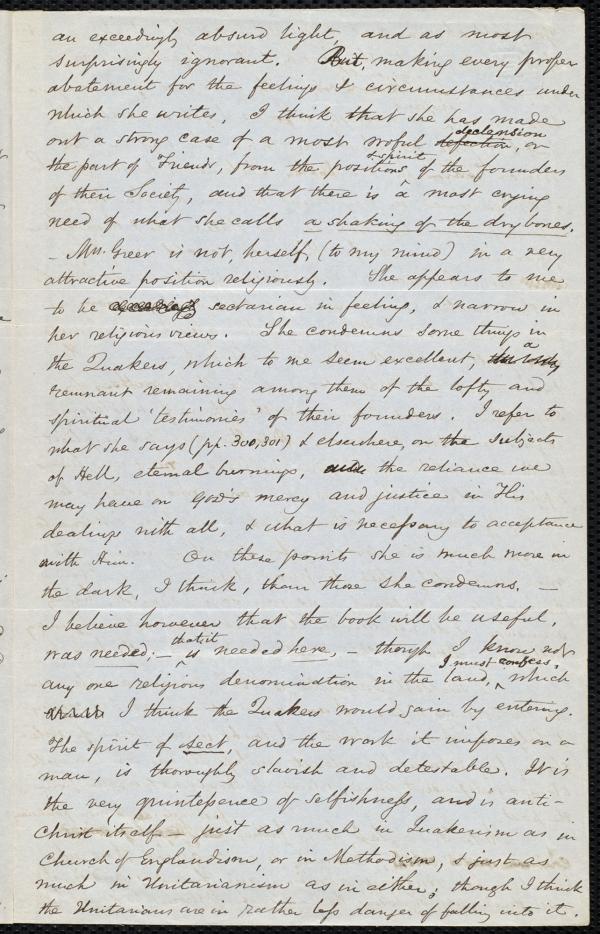 an exceedingly absurd light, and as most
surprisingly ignorant. But, making every proper
abatement for the feelings & circumstances under
which she writes, I think that she has made
out a strong case of a most woful defection declension, on
the part of 'Friends', from the positions & spirit of the founders
of their Society, and that there is a most crying
need of what she calls a shaking of the dry bones.
– Mrs. Greer is not, herself, (to my mind) in a very
attractive position religiously. She appears to me
to be sectarian in feeling, & narrow in
her religious views. She condemns some things in
the Quakers, which to me seem excellent, a
remnant remaining among them of the lofty and
spiritual 'testimonies' of their founders. I refer to
what she says (pp. 300, 301) & elsewhere, on the subjects
of Hell, eternal burnings, the reliance we
may have on God's mercy and justice in His
dealings with all, & what is necessary to acceptance
with Him. On these points she is much more in
the dark, I think, than those she condemns. —
I believe however that the book will be useful,
was needed; – that it is needed here, – though I know not
any one religious denomination in the land, I must confess, which
I think the Quakers would gain by entering.
The spirit of sect, and the work it imposes on a
man, is thoroughly slavish and detestable. It is
the very quintessence of selfishness, and is anti-
Christ itself – just as much in Quakerism as in
Church of Englandism, or in Methodism, & just as
much in Unitarianism as in either; though I think
the Unitarians are in rather less danger of falling into it.